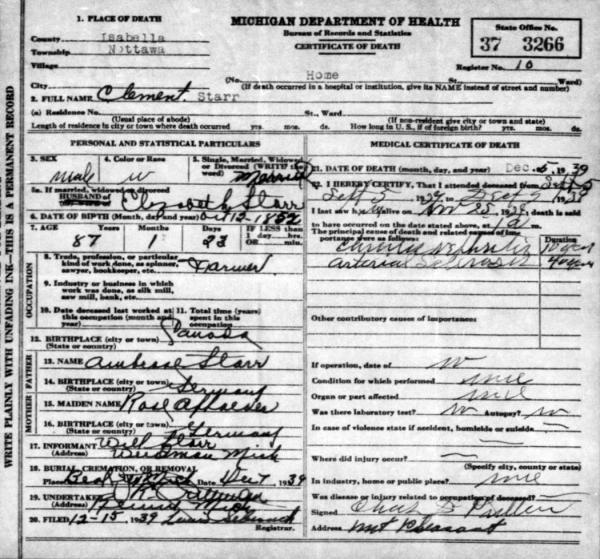 1. PLACE OF DEATH
County Isabella
Township Nottawa
Village
City
MICHIGAN DEPARTMENT OF HEALTH
Bureau of Records and Statistics
CERTIFICATE OF DEATH
State Office No.
37 3266
Register No. 10
(No. Home St. Ward)
(If death occurred in a hospital or institution, give its NAME instead of street and number)
2. FULL NAME Clement Starr
(a) Residence No. St., Ward.
(Usual place of abode) (If non-resident give city or town and state)
Length of residence in city or town where death occurred yrs. mos. ds. How long in U. S., if of foreign birth? yrs. mos. ds.
WRITE PLAINLY WITH UNFADING INK—THIS IS A PERMANENT RECORD
PERSONAL AND STATISTICAL PARTICULARS
3. SEX male
4. Color or Race w
5. Single, Married, Widowed or Divorced (WRITE the word) Married
5a. If married, widowed or divorced
HUSBAND of Elizabeth Starr
6. DATE OF BIRTH (Month, day and year) Oct 12-1852
7. AGE Years Months Days IF LESS than 1 day, hrs. OR min.
87 1 23
OCCUPATION
8. Trade, profession, or particular kind of work done, as spinner, sawyer, bookkeeper, etc. Farmer
9. Industry or business in which work was done, as silk mill, saw mill, bank, etc.
10. Date deceased last worked at this occupation (month and year)
11. Total time (years) spent in this occupation
12. BIRTHPLACE (city or town) Canada
(State or country)
FATHER
13. NAME Ambrose Starr
14. BIRTHPLACE (city or town) Germany
(State or country)
MOTHER
15. MAIDEN NAME Rose
16. BIRTHPLACE (city or town) Germany
(State or country)
17. INFORMANT Will Starr
(Address) Weidman Mich
18. BURIAL, CREMATION, OR REMOVAL
Place Date 1939
19. UNDERTAKER
(Address) Mich
20. FILED 12-15, 1939
Registrar.
MEDICAL CERTIFICATE OF DEATH
21. DATE OF DEATH (month, day, and year) Dec. 5, 1939
22. I HEREBY CERTIFY, That I attended deceased from
Sept 5 1939
I last saw h alive on Nov 25, 1939, death is said
to have occurred on the date stated above, at
The principal cause of death and related causes of importance were as follows: Duration
Arterial Sclerosis
Other contributory causes of importance:
If operation, date of
Condition for which performed
Organ or part affected
Was there laboratory test? Autopsy?
In case of violence state if accident, homicide or suicide
Where did injury occur?
(Specify city, county or state)
In industry, home or public place?
Was disease or injury related to occupation of deceased?
Signed Chas
Address Mt Pleasant